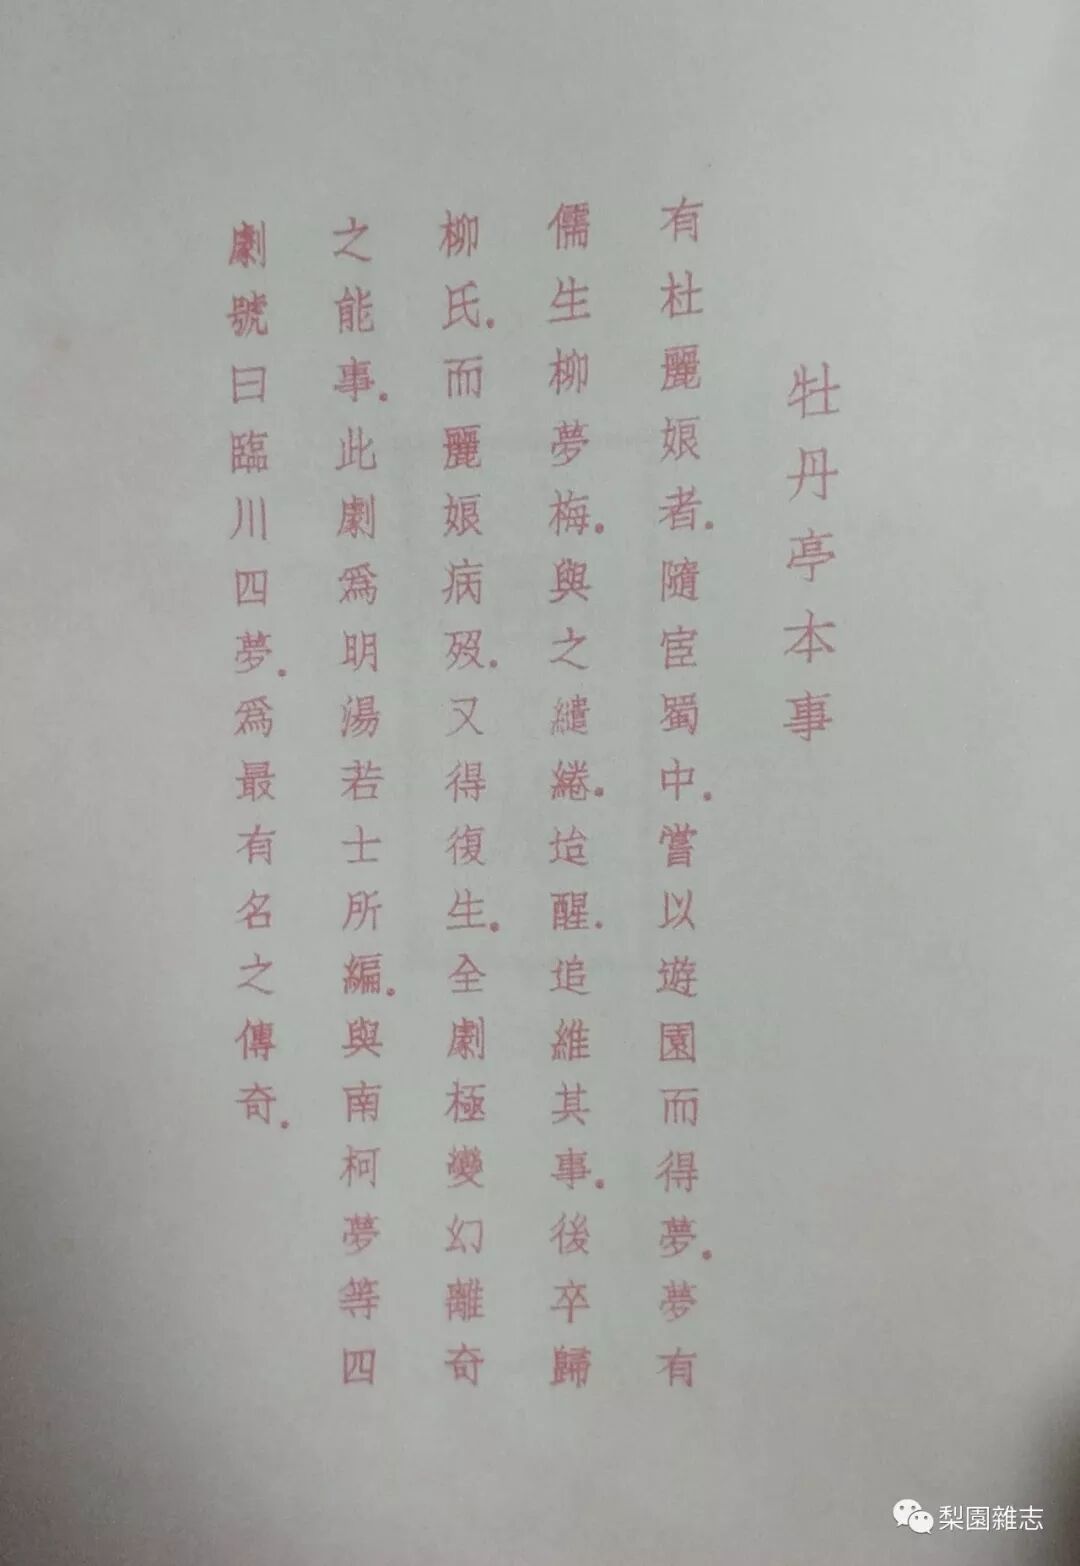 牡丹亭本事
有杜麗娘者。隨宦蜀中。嘗以遊園而得夢。夢有
儒生柳夢梅。與之繾綣。迨醒。追維其事。後卒歸
柳氏。而麗娘病歿。又得復生。全劇極變幻離奇
之能事。此劇爲明湯若士所編。與南柯夢等四
劇號曰臨川四夢。爲最有名之傳奇。
梨園雜志